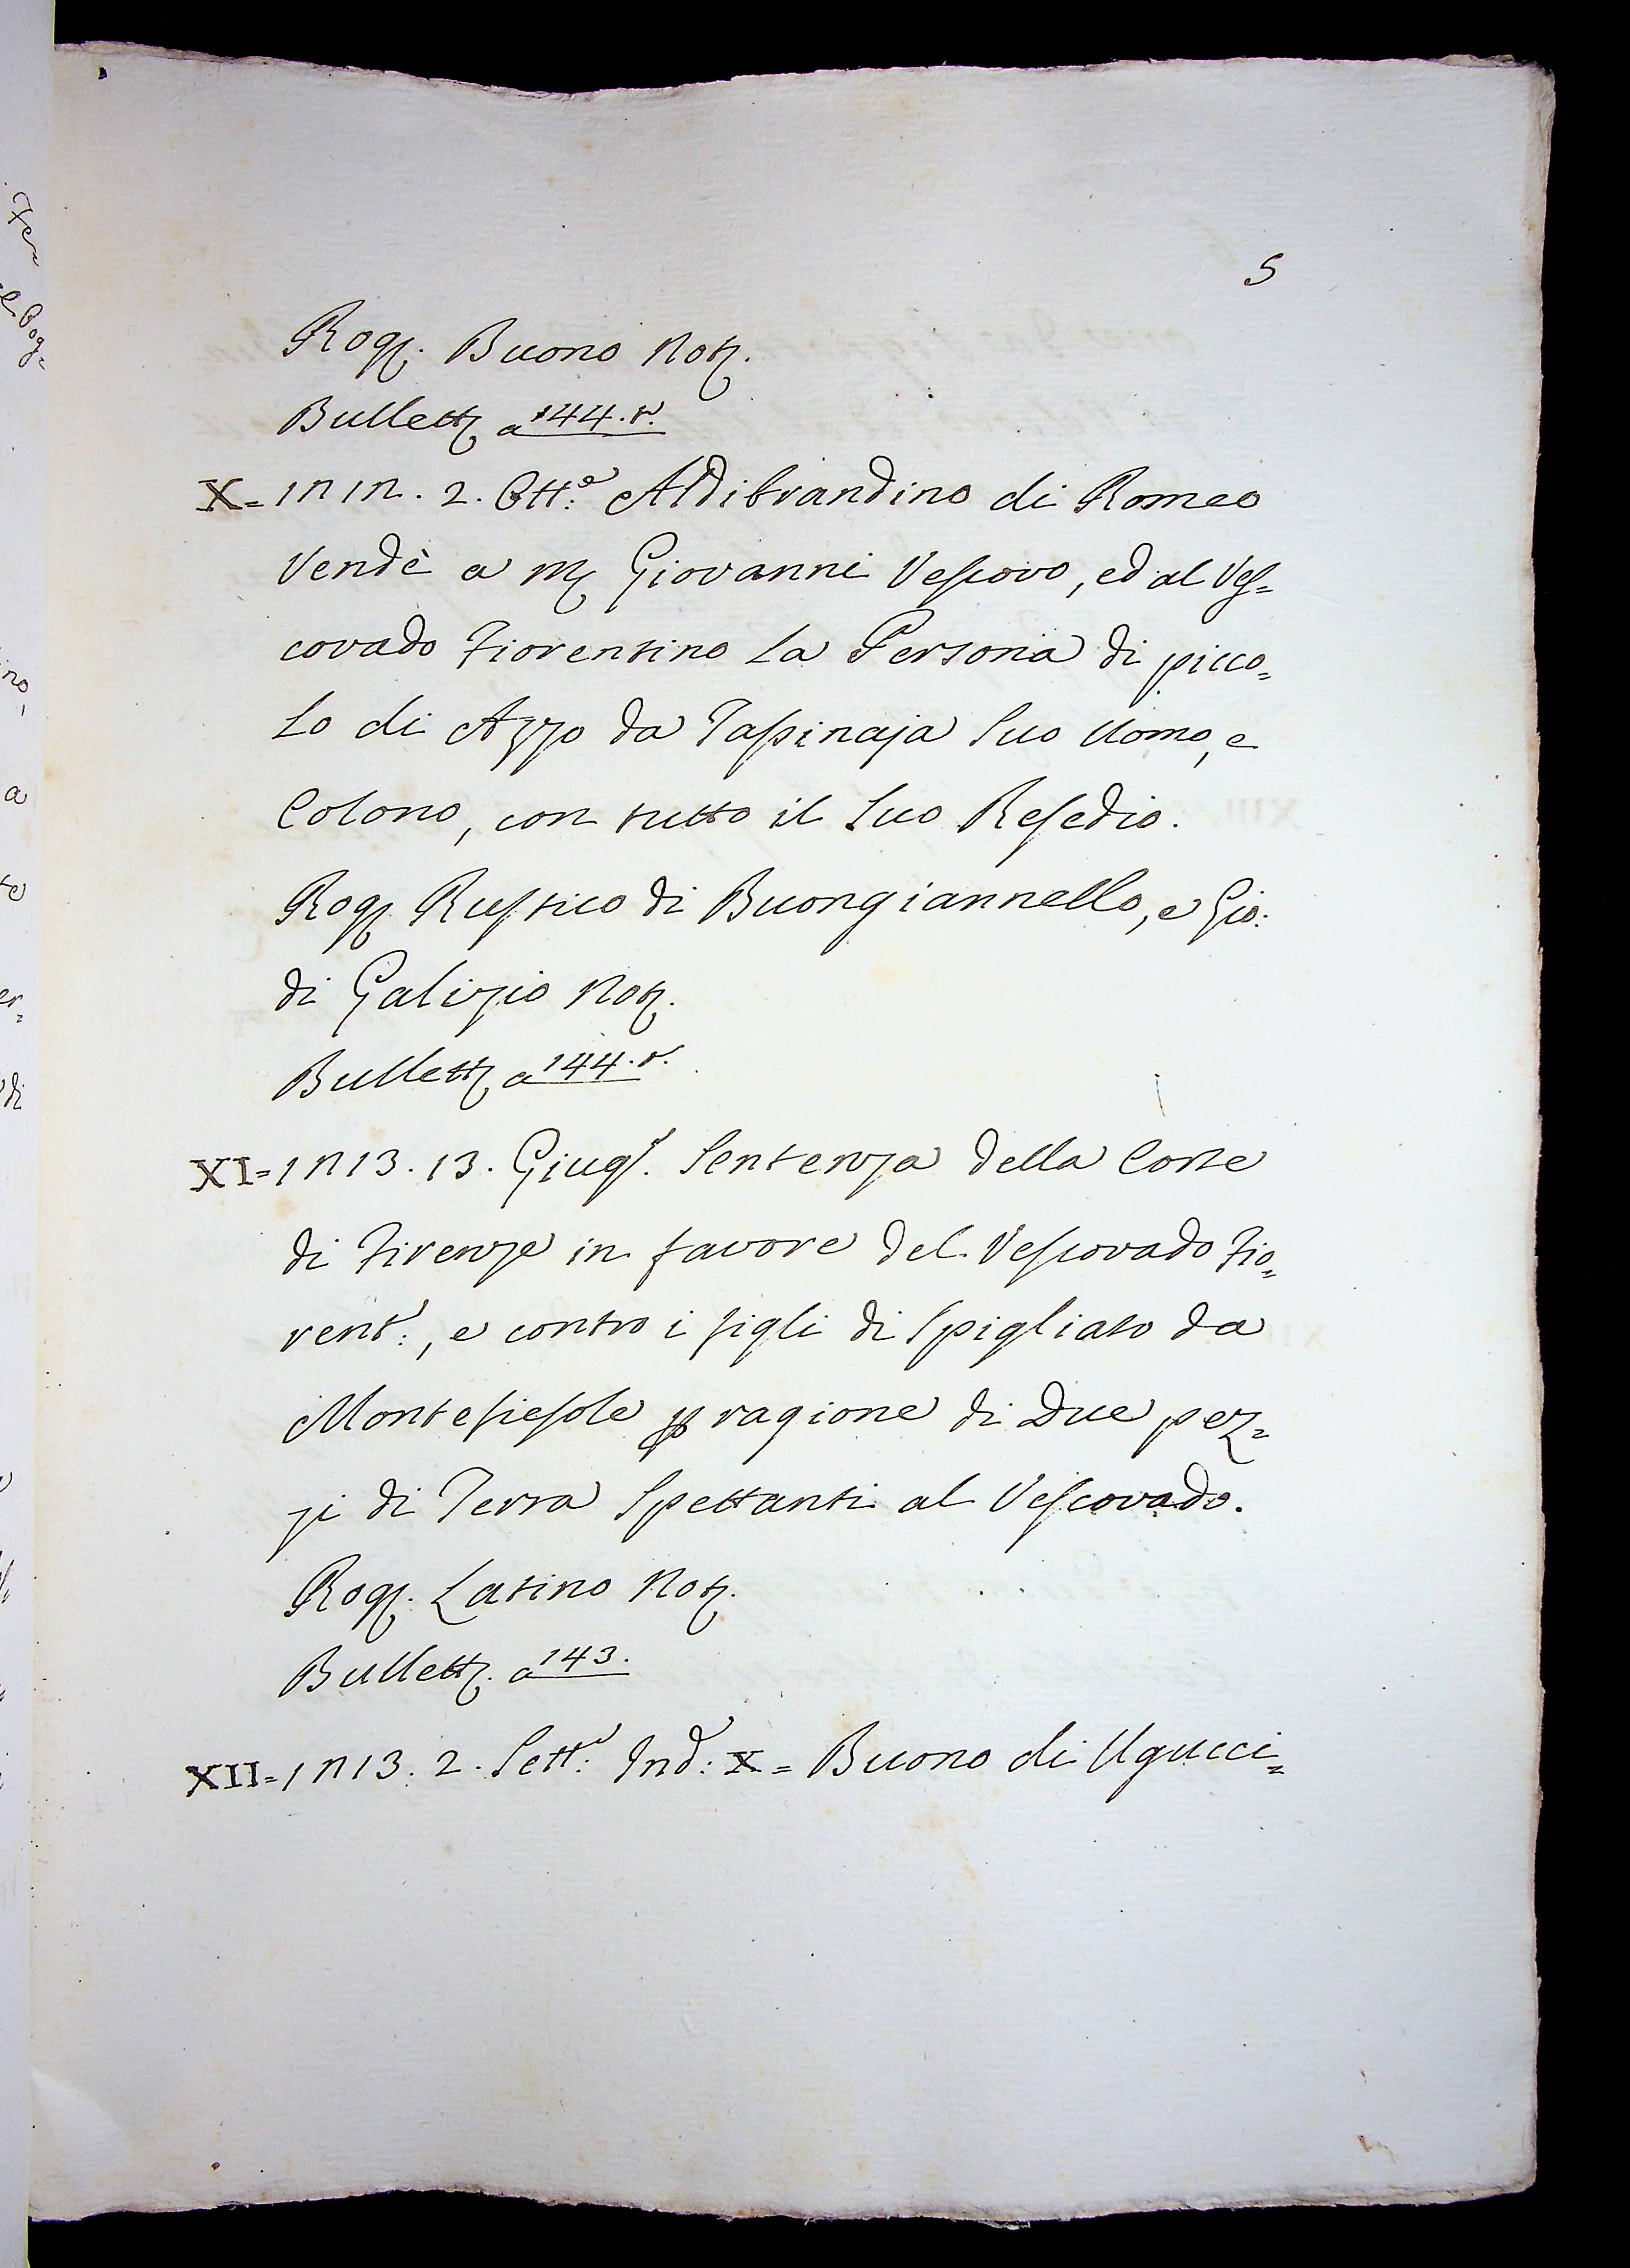 5
Rog. Buono Not.
Bullett. a 144. r.
X= 1212. 2. Ott.e Aldibrandino di Romeo
Vendè a M. Giovanni Vescovo, ed al Ves=
covado Fiorentino la Persona di picco=
lo di Azzo da Tassinaja suo Uomo, e
Colono, con tutto il suo Resedio.
Rog. Rustico di Buongiannello, e Gio:
di Galizio Not.
Bullett. a 144. r.
XI= 1213. 13. Giug. Sentenza della Corte
di Firenze in favore del Vescovado Fio=
rent:, e contro i figli di Spigliato da
Montefiesole p ragione di Due pez=
zi di Terra Spettanti al Vescovado.
Rog. Latino Not.
Bullett. a 143.
XII= 1213. 2. Sett.e Ind: X= Buono di Ugucci=